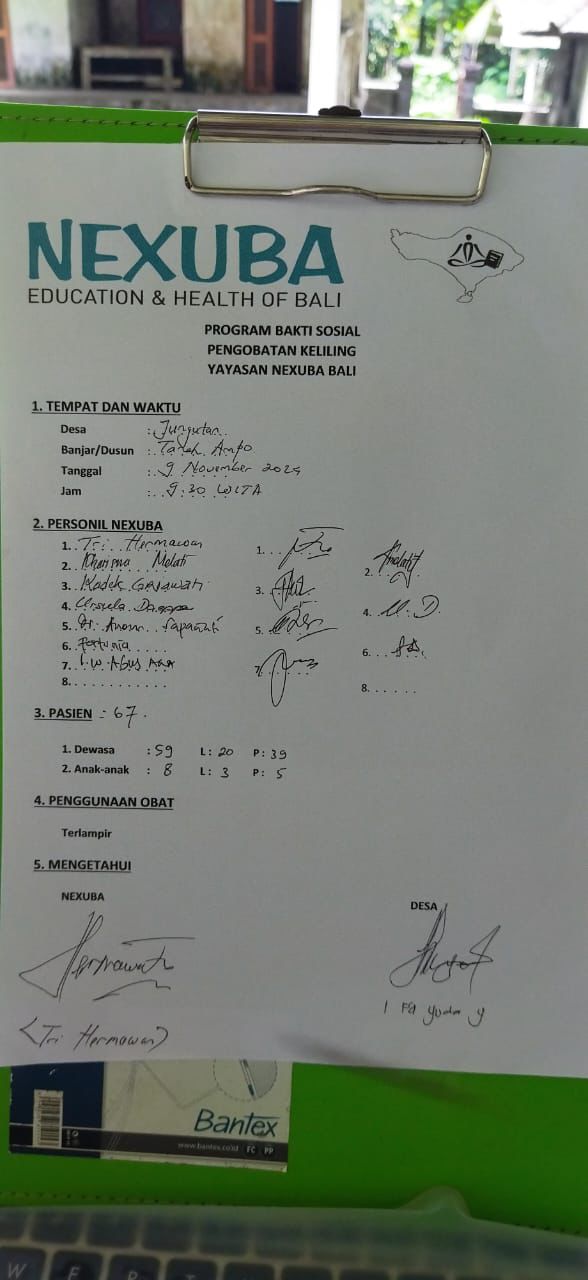 NEXUBA
EDUCATION & HEALTH OF BALI
PROGRAM BAKTI SOSIAL
PENGOBATAN KELILING
YAYASAN NEXUBA BALI
1. TEMPAT DAN WAKTU
Desa : Jungutan
Banjar/Dusun : Tanah Ampo
Tanggal : 9 November 2025
Jam : 9:30 WITA
2. PERSONIL NEXUBA
1. Tri Hermawan 1.
2. Kharisma Melati 2.
3. Kadek 3.
4. Ursula 4. U.D.
5. Dr. Anom 5.
6. Fortunia 6.
7. I W Agus 7.
8. 8.
3. PASIEN : 67.
1. Dewasa : 59 L: 20 P: 39
2. Anak-anak : 8 L: 3 P: 5
4. PENGGUNAAN OBAT
Terlampir
5. MENGETAHUI
NEXUBA DESA
(Tri Hermawan) yuda y
Bantex
www.bantex.co.id FC PP
W E R T